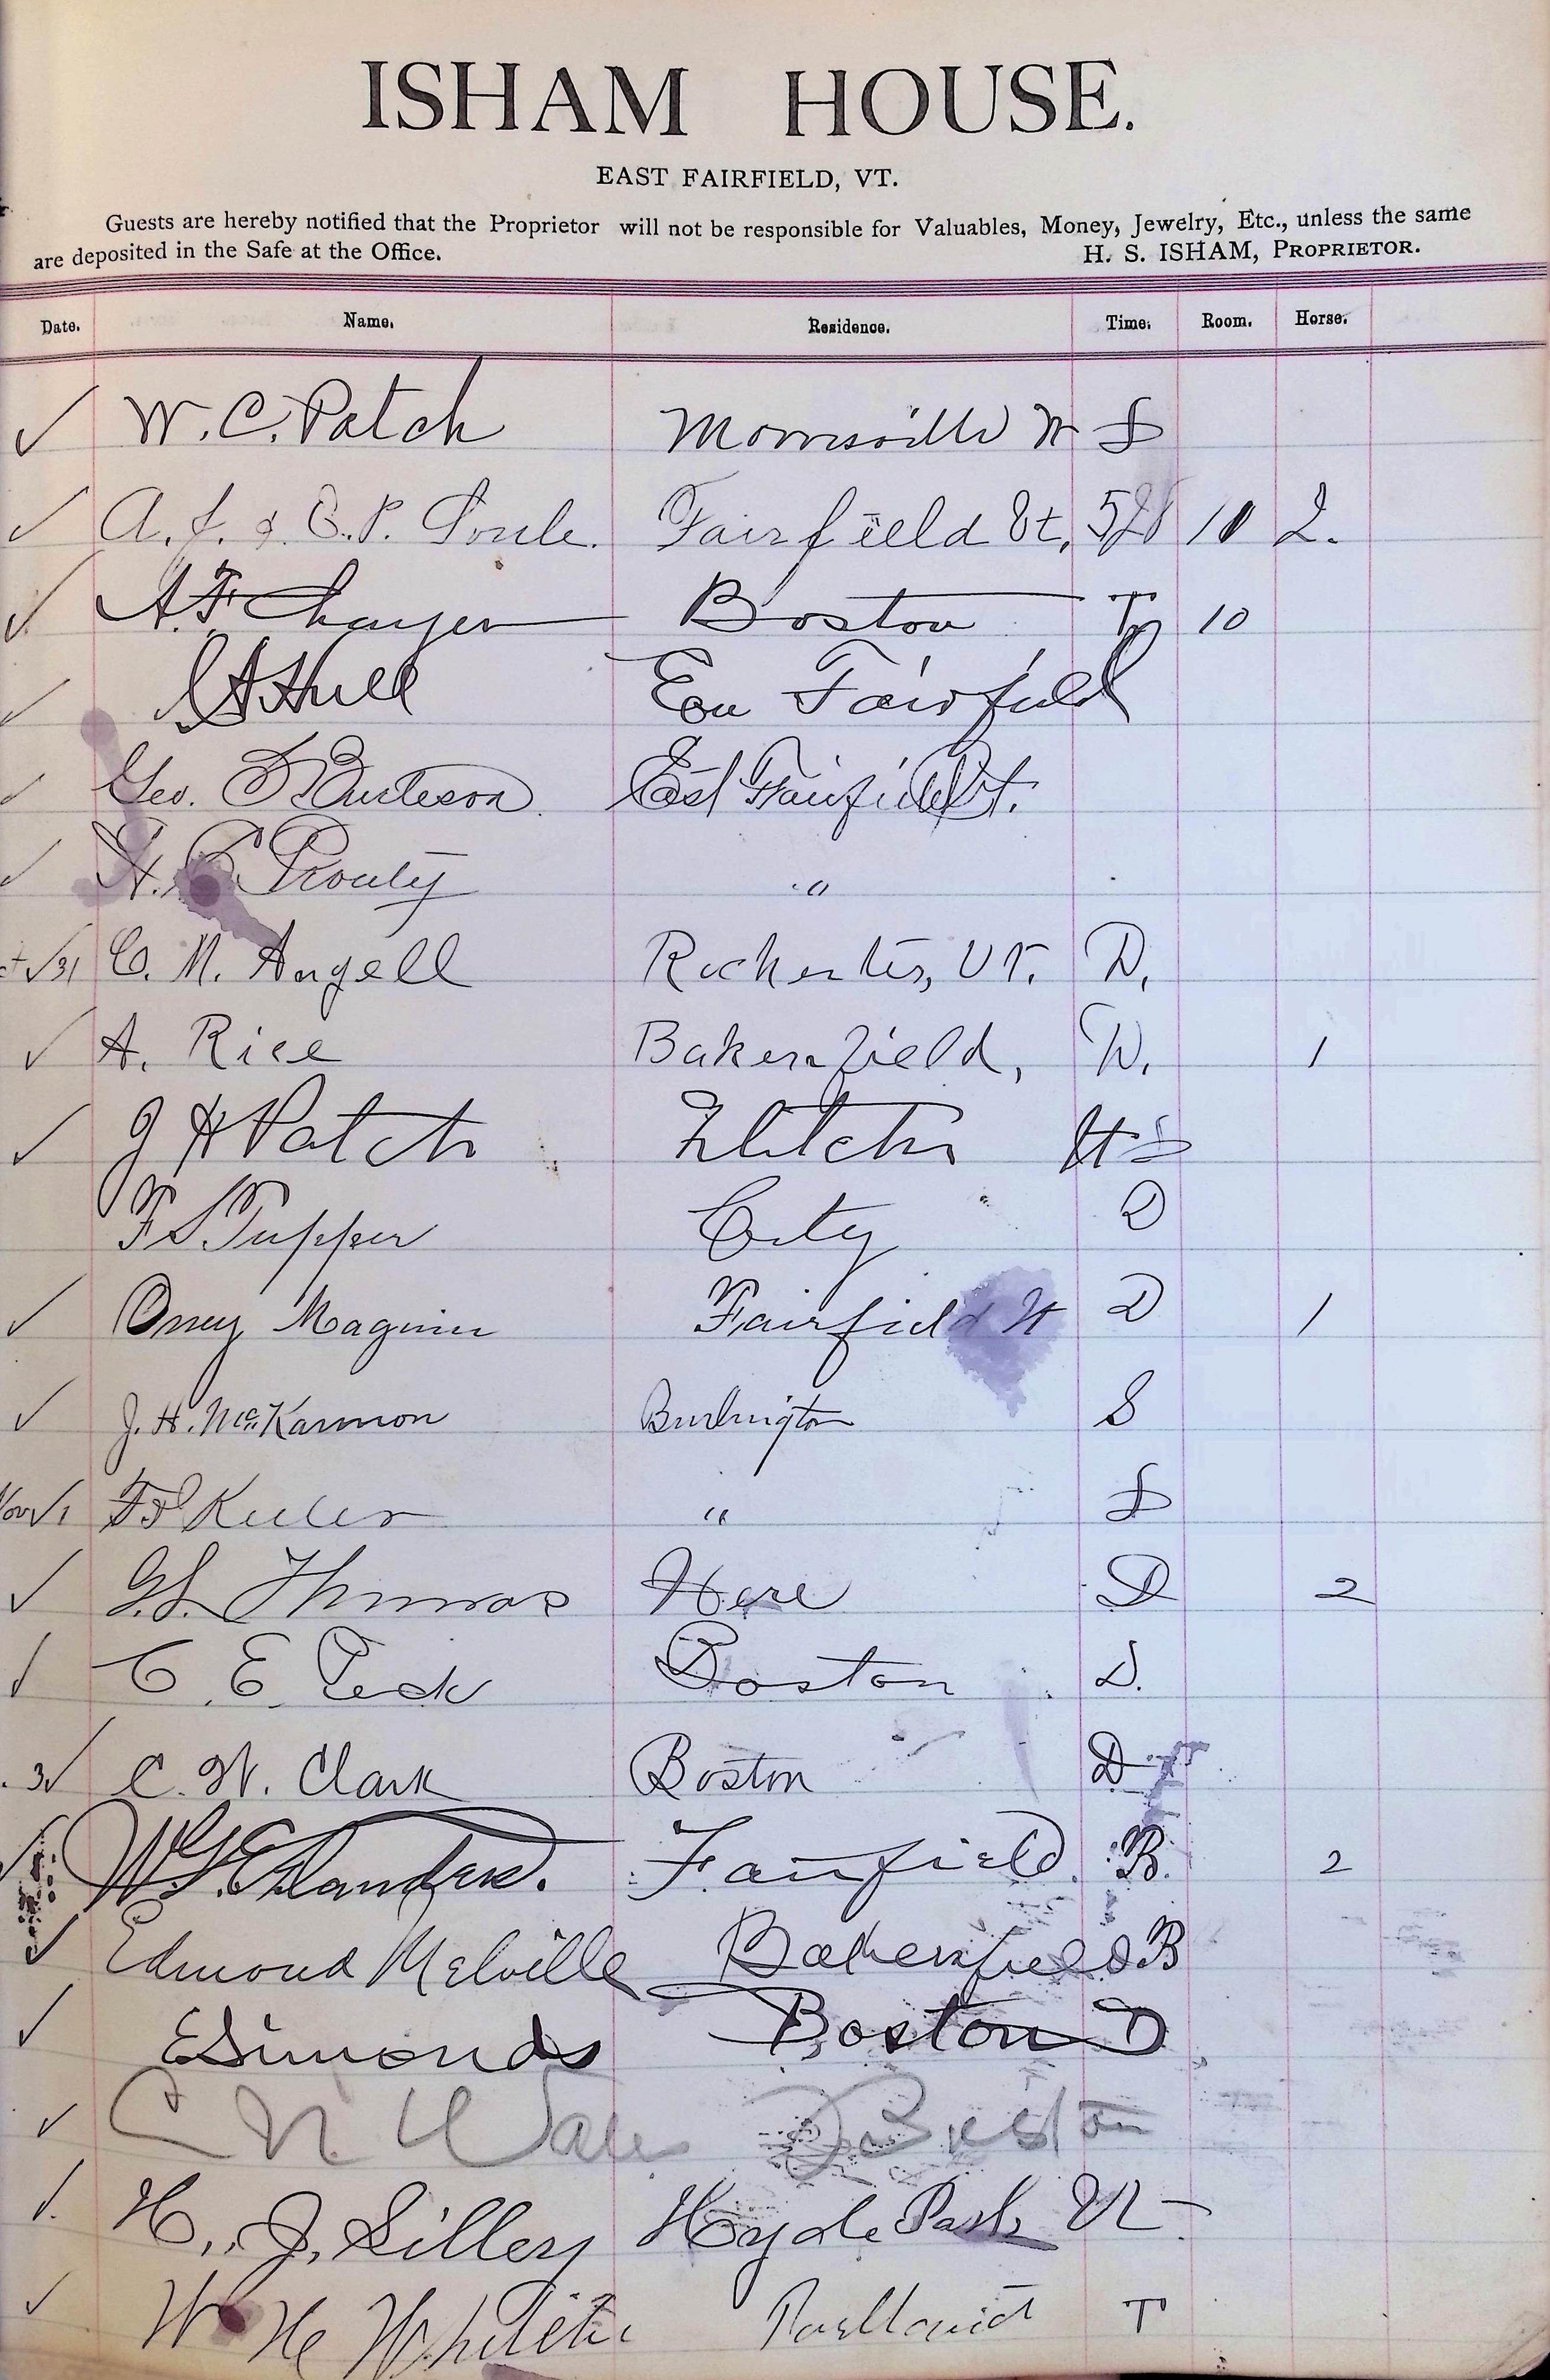 ISHAM HOUSE.
EAST FAIRFIELD, VT.
Guests are hereby notified that the Proprietor will not be responsible for Valuables, Money, Jewelry, Etc., unless the same
are deposited in the Safe at the Office. H. S. ISHAM, PROPRIETOR.
Date. Name. Residence. Time. Room. Horse.
✓ W. C. Patch Morrisville Vt S
✓ A. J. & C. P. Soule. Fairfield Vt. 10 2.
✓ A. F. Thayer Boston T 10
✓ Hull East Fairfield
✓ Geo. Burleson East Fairfield Vt.
✓ Prouty "
✓ 31 C. M. Angell Rochester, VT. D.
✓ A. Rice Bakersfield, D. 1
✓ J H Patch Fletcher
F S Tupper City D
✓ Maginn Fairfield Vt D 1
✓ J. H. McKannon Burlington S
Nov ✓ 1 Keeler " S
✓ G. S. Thomas Here D 2
✓ C. E. Peck Boston D.
3 ✓ C. W. Clark Boston D
✓ Fairfield B. 2
✓ Edmond Melville Bakersfield B
✓ E Simonds Boston D
✓ C N Boston
✓ H. J. Lilley Hyde Park Vt
✓ W H T